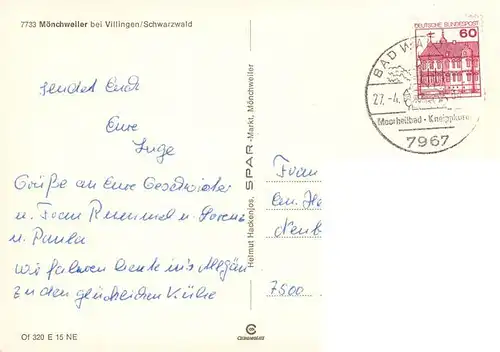 7733 Mönchweiler bei Villingen/Schwarzwald
sendet Euch
Eure
Inge
Grüße an Eure Geschwister
u. Frau Rummel u. Lorenz
u. Paula
wir fahren heute ins Allgäu
zu den glücklichen Kühe
Of 320 E 15 NE
Helmut Hackenjos, SPAR-Markt, Mönchweiler
DEUTSCHE BUNDESPOST
60
BAD
27. -4.
Moorheilbad · Kneippkuren
7967
Frau
7500